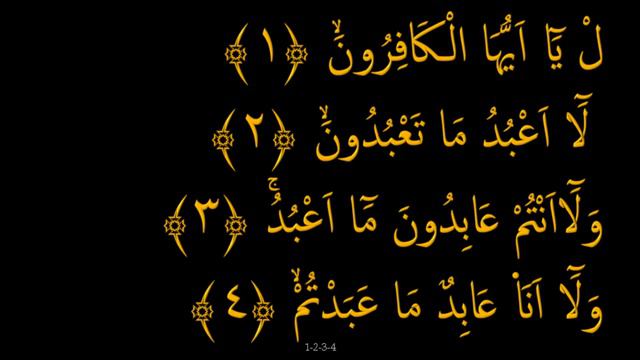 لْ يَٓا اَيُّهَا الْكَافِرُونَۙ ﴿١﴾
لَٓا اَعْبُدُ مَا تَعْبُدُونَۙ ﴿٢﴾
وَلَٓا اَنْتُمْ عَابِدُونَ مَٓا اَعْبُدُۚ ﴿٣﴾
وَلَٓا اَنَا۬ عَابِدٌ مَا عَبَدْتُمْۙ ﴿٤﴾
1-2-3-4